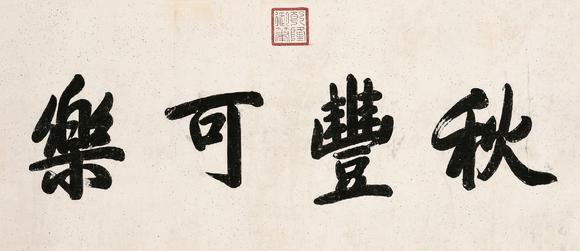 秋豐可樂